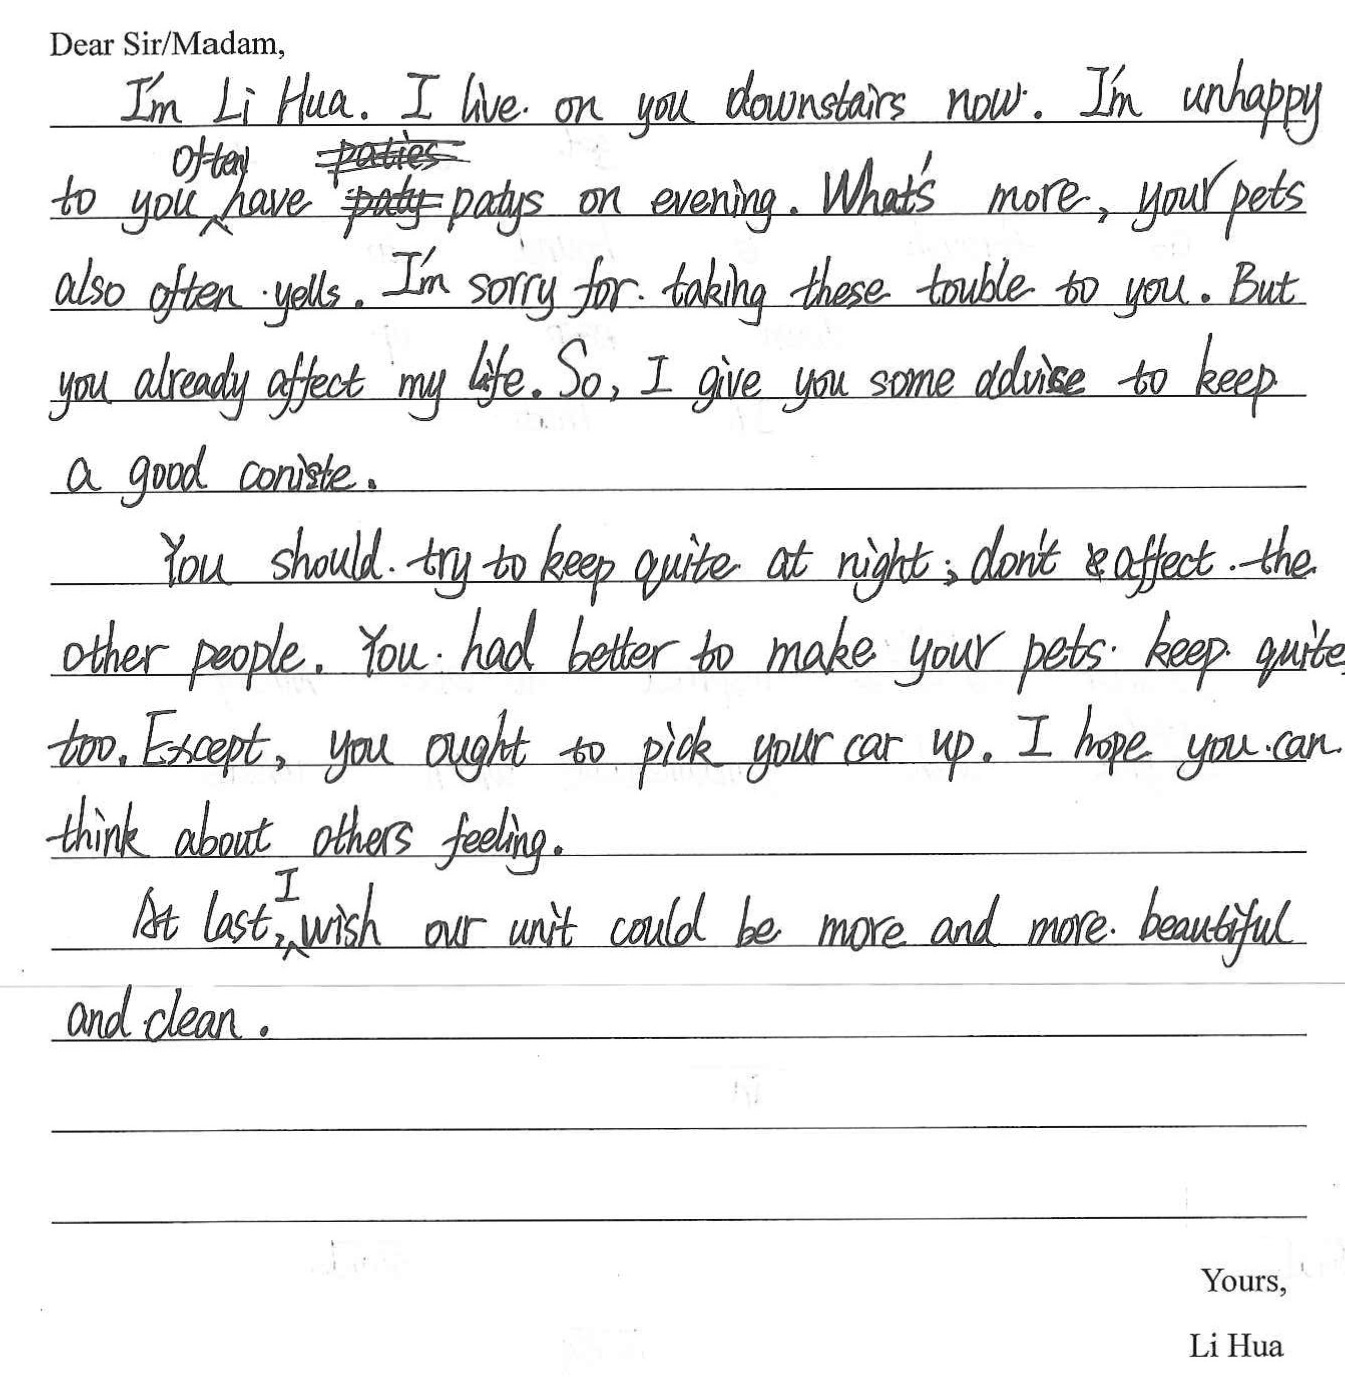 Dear Sir/Madam,
I'm Li Hua. I live on you downstairs now. I'm unhappy
to you often have patys on evening. What's more, your pets
also often yells. I'm sorry for taking these touble to you. But
you already affect my life. So, I give you some advise to keep
a good coniste.
You should try to keep quite at night; don't affect the
other people. You had better to make your pets keep quite
too. Except, you ought to pick your car up. I hope you can
think about others feeling.
At last, I wish our unit could be more and more beautiful
and clean.
Yours,
Li Hua